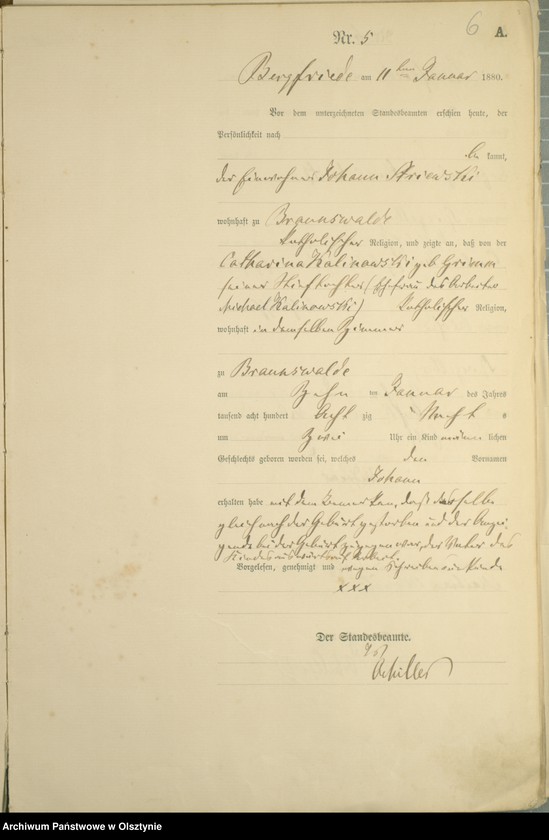 6
A.
Nr. 5
Bergfriede am 11 ten Januar 1880.
Vor dem unterzeichneten Standesbeamten erschien heute, der
Persönlichkeit nach
be kannt,
der Einwohner Johann
wohnhaft zu Braunswalde
katholischer Religion, und zeigte an, daß von der
Catharina Kalinowski geb Grimm
seiner Stieftochter (Ehefrau des Arbeiter
Michael Kalinowski) katholischer Religion,
wohnhaft in demselben Zimmer
zu Braunswalde
am Zehn ten Januar des Jahres
tausend acht hundert Acht zig
um Zwei Uhr ein Kind männ lichen
Geschlechts geboren worden sei, welches den Vornamen
Johann
erhalten habe mit dem Bemerken, daß dasselbe
gleich nach der Geburt gestorben und der Anzei-
gende bei der Geburt zugegen war, der Vater des
Kindes auswärts auf Arbeit.
Vorgelesen, genehmigt und wegen Schreibensunkunde
xxx
Der Standesbeamte.
Schiller
Archiwum Państwowe w Olsztynie